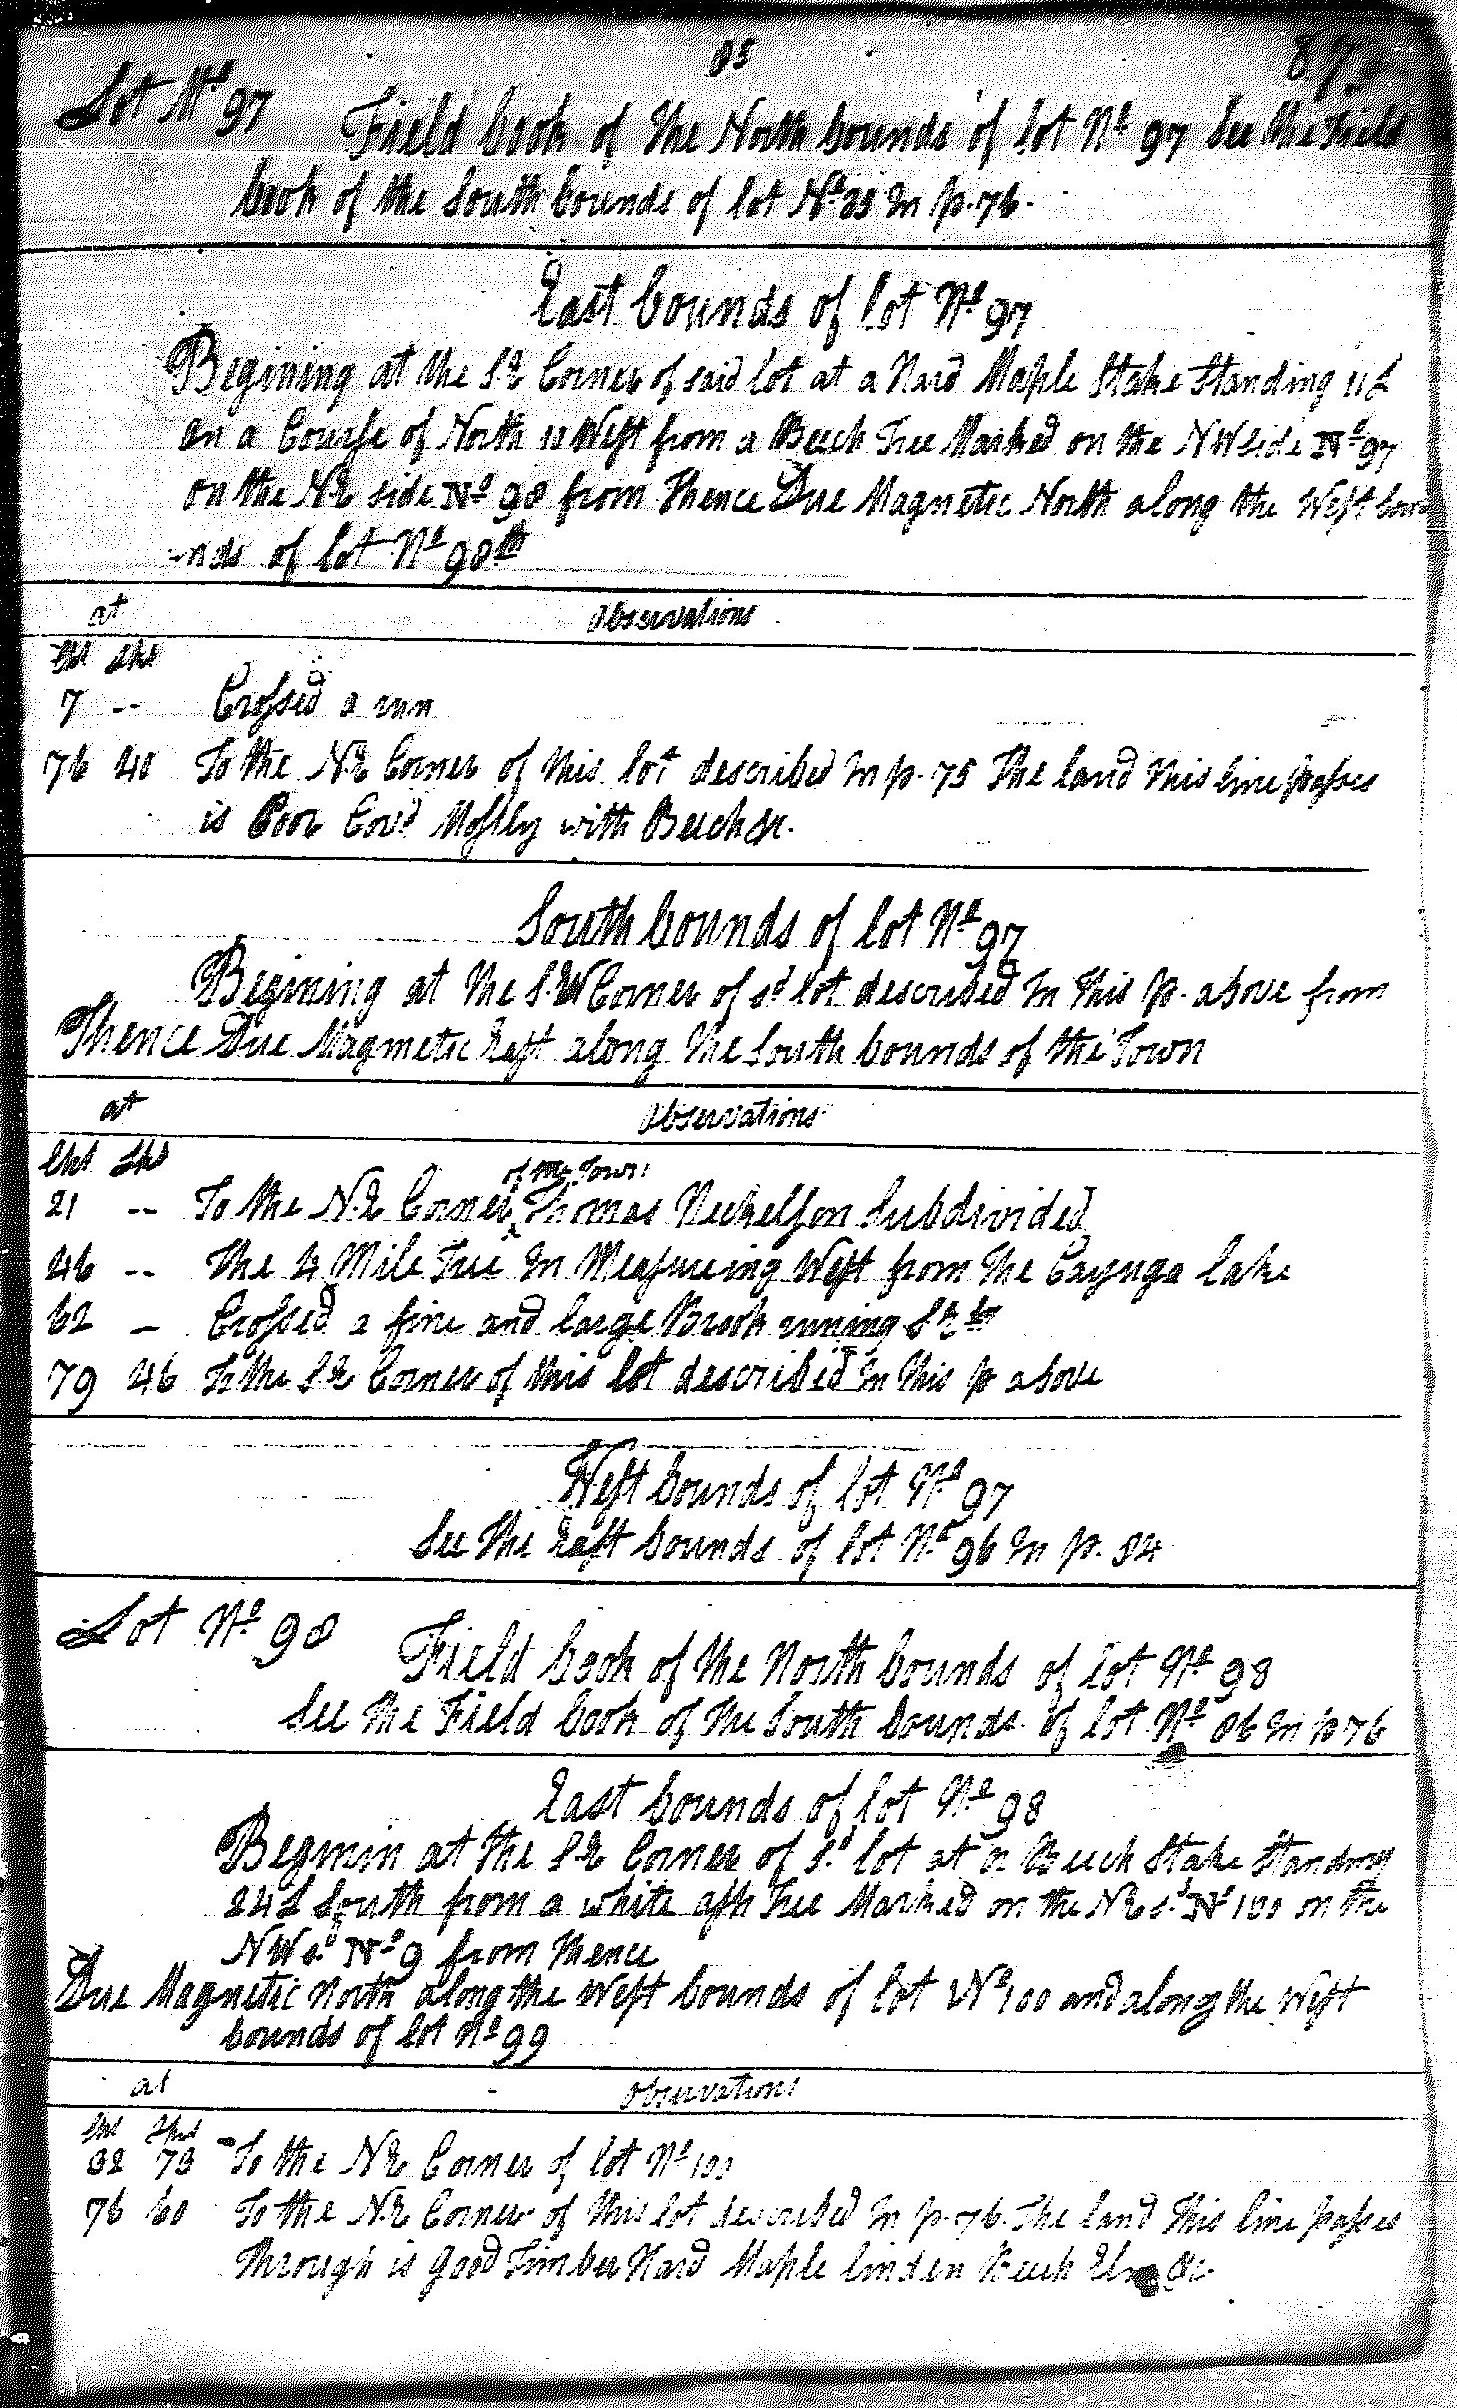 85
87
Lot No 97 Field book of the North bounds of lot No 97 See the field
book of the South bounds of lot No 85 In p. 76.
East bounds of lot No 97
Begining at the S.E Corner of said lot at a Hard Maple Stake Standing 11 L
on a Course of North 10 West from a Beech Tree Marked on the N W side No 97
on the N.E side No 98 from thence Due Magnetic North along the West bou
-nds of lot No 98
at Observations
Chs Lks
7 -- Crossed a run
76 40 To the N.E Corner of this lot described In p. 75 The land this line passes
is Poor Cov'd Mostly with Beech &c.
South bounds of lot No 97
Begining at the S.W Corner of sd lot described In this p. above from
Thence Due Magnetic East along the South bounds of the Town
at Observations
Chs Lks
of the Town
21 -- To the N.E Corner Thomas Nichelson Subdivided
46 -- The 4 Mile Tree In Measureing West from the Cayuga Lake
62 – Crossed a fine and large Brook runing S.E
79 46 To the S.E Corner of this lot described In this p above
West bounds of lot No 97
See the East bounds of lot No 96 In p. 84
Lot No 98 Field book of the North bounds of lot No 98
See the Field book of the South bounds of lot No 86 In p 76
East bounds of lot No 98
Beginin at the S.E Corner of sd lot at a Beech Stake Standing
24 L South from a white ash Tree Marked on the N E sd No 100 on the
N W sd No 9 from thence
Due Magnetic North along the West bounds of lot No 100 and along the West
bounds of lot No 99
at Observations
Chs Lks
32 73 To the N.E Corner of lot No 100
76 60 To the N.E Corner of this lot described In p. 76. The land this line passes
Through is good Timber Hard Maple linden Beech Elm &c.